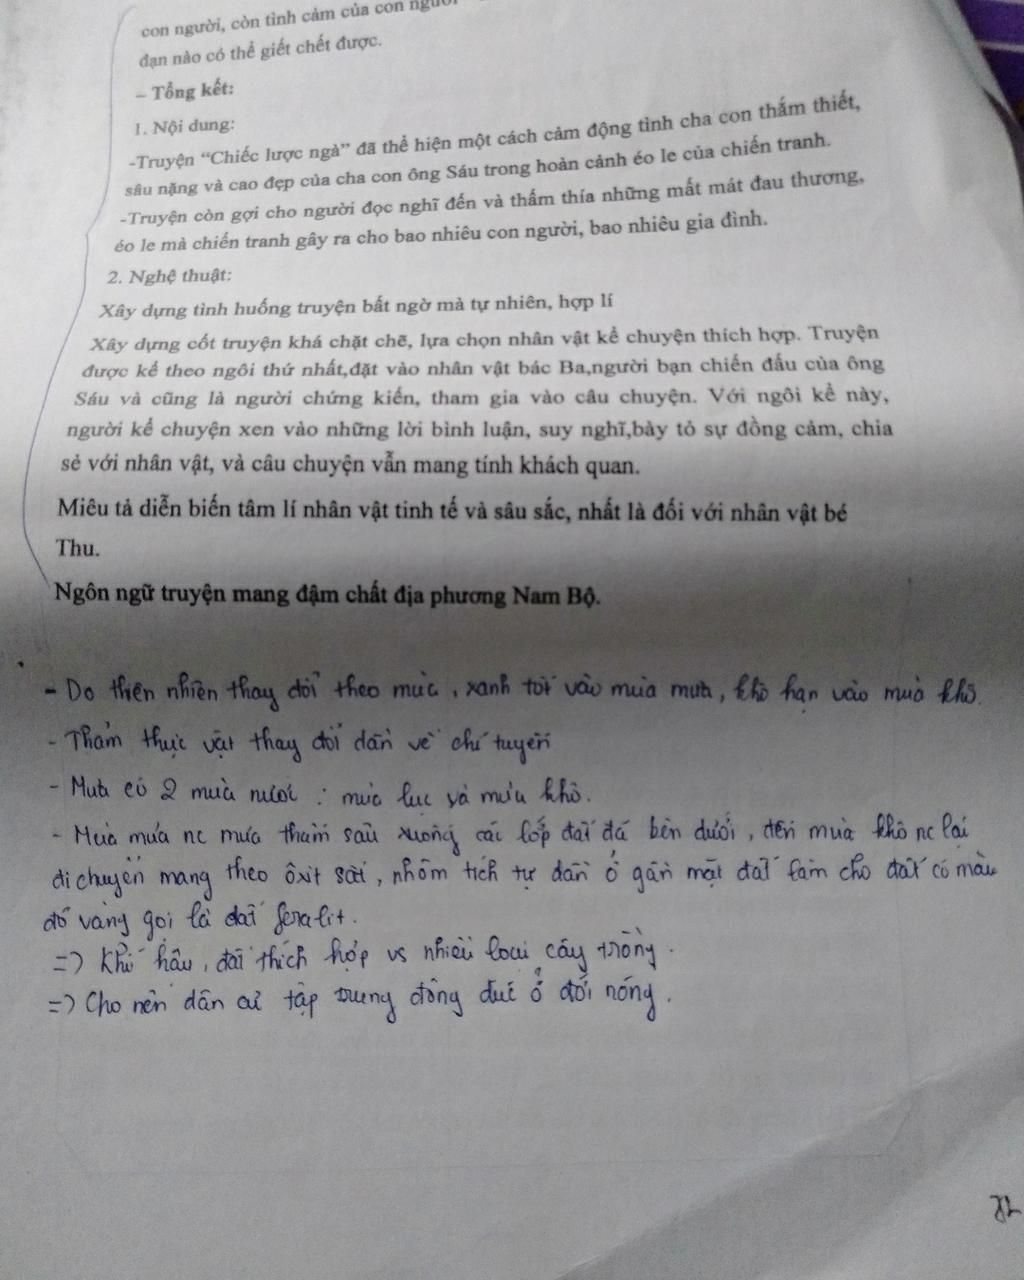 con người, còn tình cảm của con người
đạn nào có thể giết chết được.
– Tổng kết:
1. Nội dung:
-Truyện “Chiếc lược ngà” đã thể hiện một cách cảm động tình cha con thắm thiết,
sâu nặng và cao đẹp của cha con ông Sáu trong hoàn cảnh éo le của chiến tranh.
-Truyện còn gợi cho người đọc nghĩ đến và thấm thía những mất mát đau thương,
éo le mà chiến tranh gây ra cho bao nhiêu con người, bao nhiêu gia đình.
2. Nghệ thuật:
Xây dựng tình huống truyện bất ngờ mà tự nhiên, hợp lí
Xây dựng cốt truyện khá chặt chẽ, lựa chọn nhân vật kể chuyện thích hợp. Truyện
được kể theo ngôi thứ nhất,đặt vào nhân vật bác Ba,người bạn chiến đấu của ông
Sáu và cũng là người chứng kiến, tham gia vào câu chuyện. Với ngôi kể này,
người kể chuyện xen vào những lời bình luận, suy nghĩ,bày tỏ sự đồng cảm, chia
sẻ với nhân vật, và câu chuyện vẫn mang tính khách quan.
Miêu tả diễn biến tâm lí nhân vật tinh tế và sâu sắc, nhất là đối với nhân vật bé
Thu.
Ngôn ngữ truyện mang đậm chất địa phương Nam Bộ.
- Do thiên nhiên thay đổi theo mùa, xanh tốt vào mùa mưa, khô hạn vào mùa khô.
- Thảm thực vật thay đổi dần về chí tuyến
- Mưa có 2 mùa nước : mùa lục và mùa khô.
- Mùa mưa nc mưa thấm sâu xuống các lớp đất đá bên dưới, đến mùa khô nc lại
di chuyển mang theo ôxit sắt, nhôm tích tụ dần ở gần mặt đất làm cho đất có màu
đỏ vàng gọi là đất feralit.
=> Khí hậu, đất thích hợp vs nhiều loại cây trồng.
=> Cho nên dân cư tập trung đông đúc ở đới nóng.